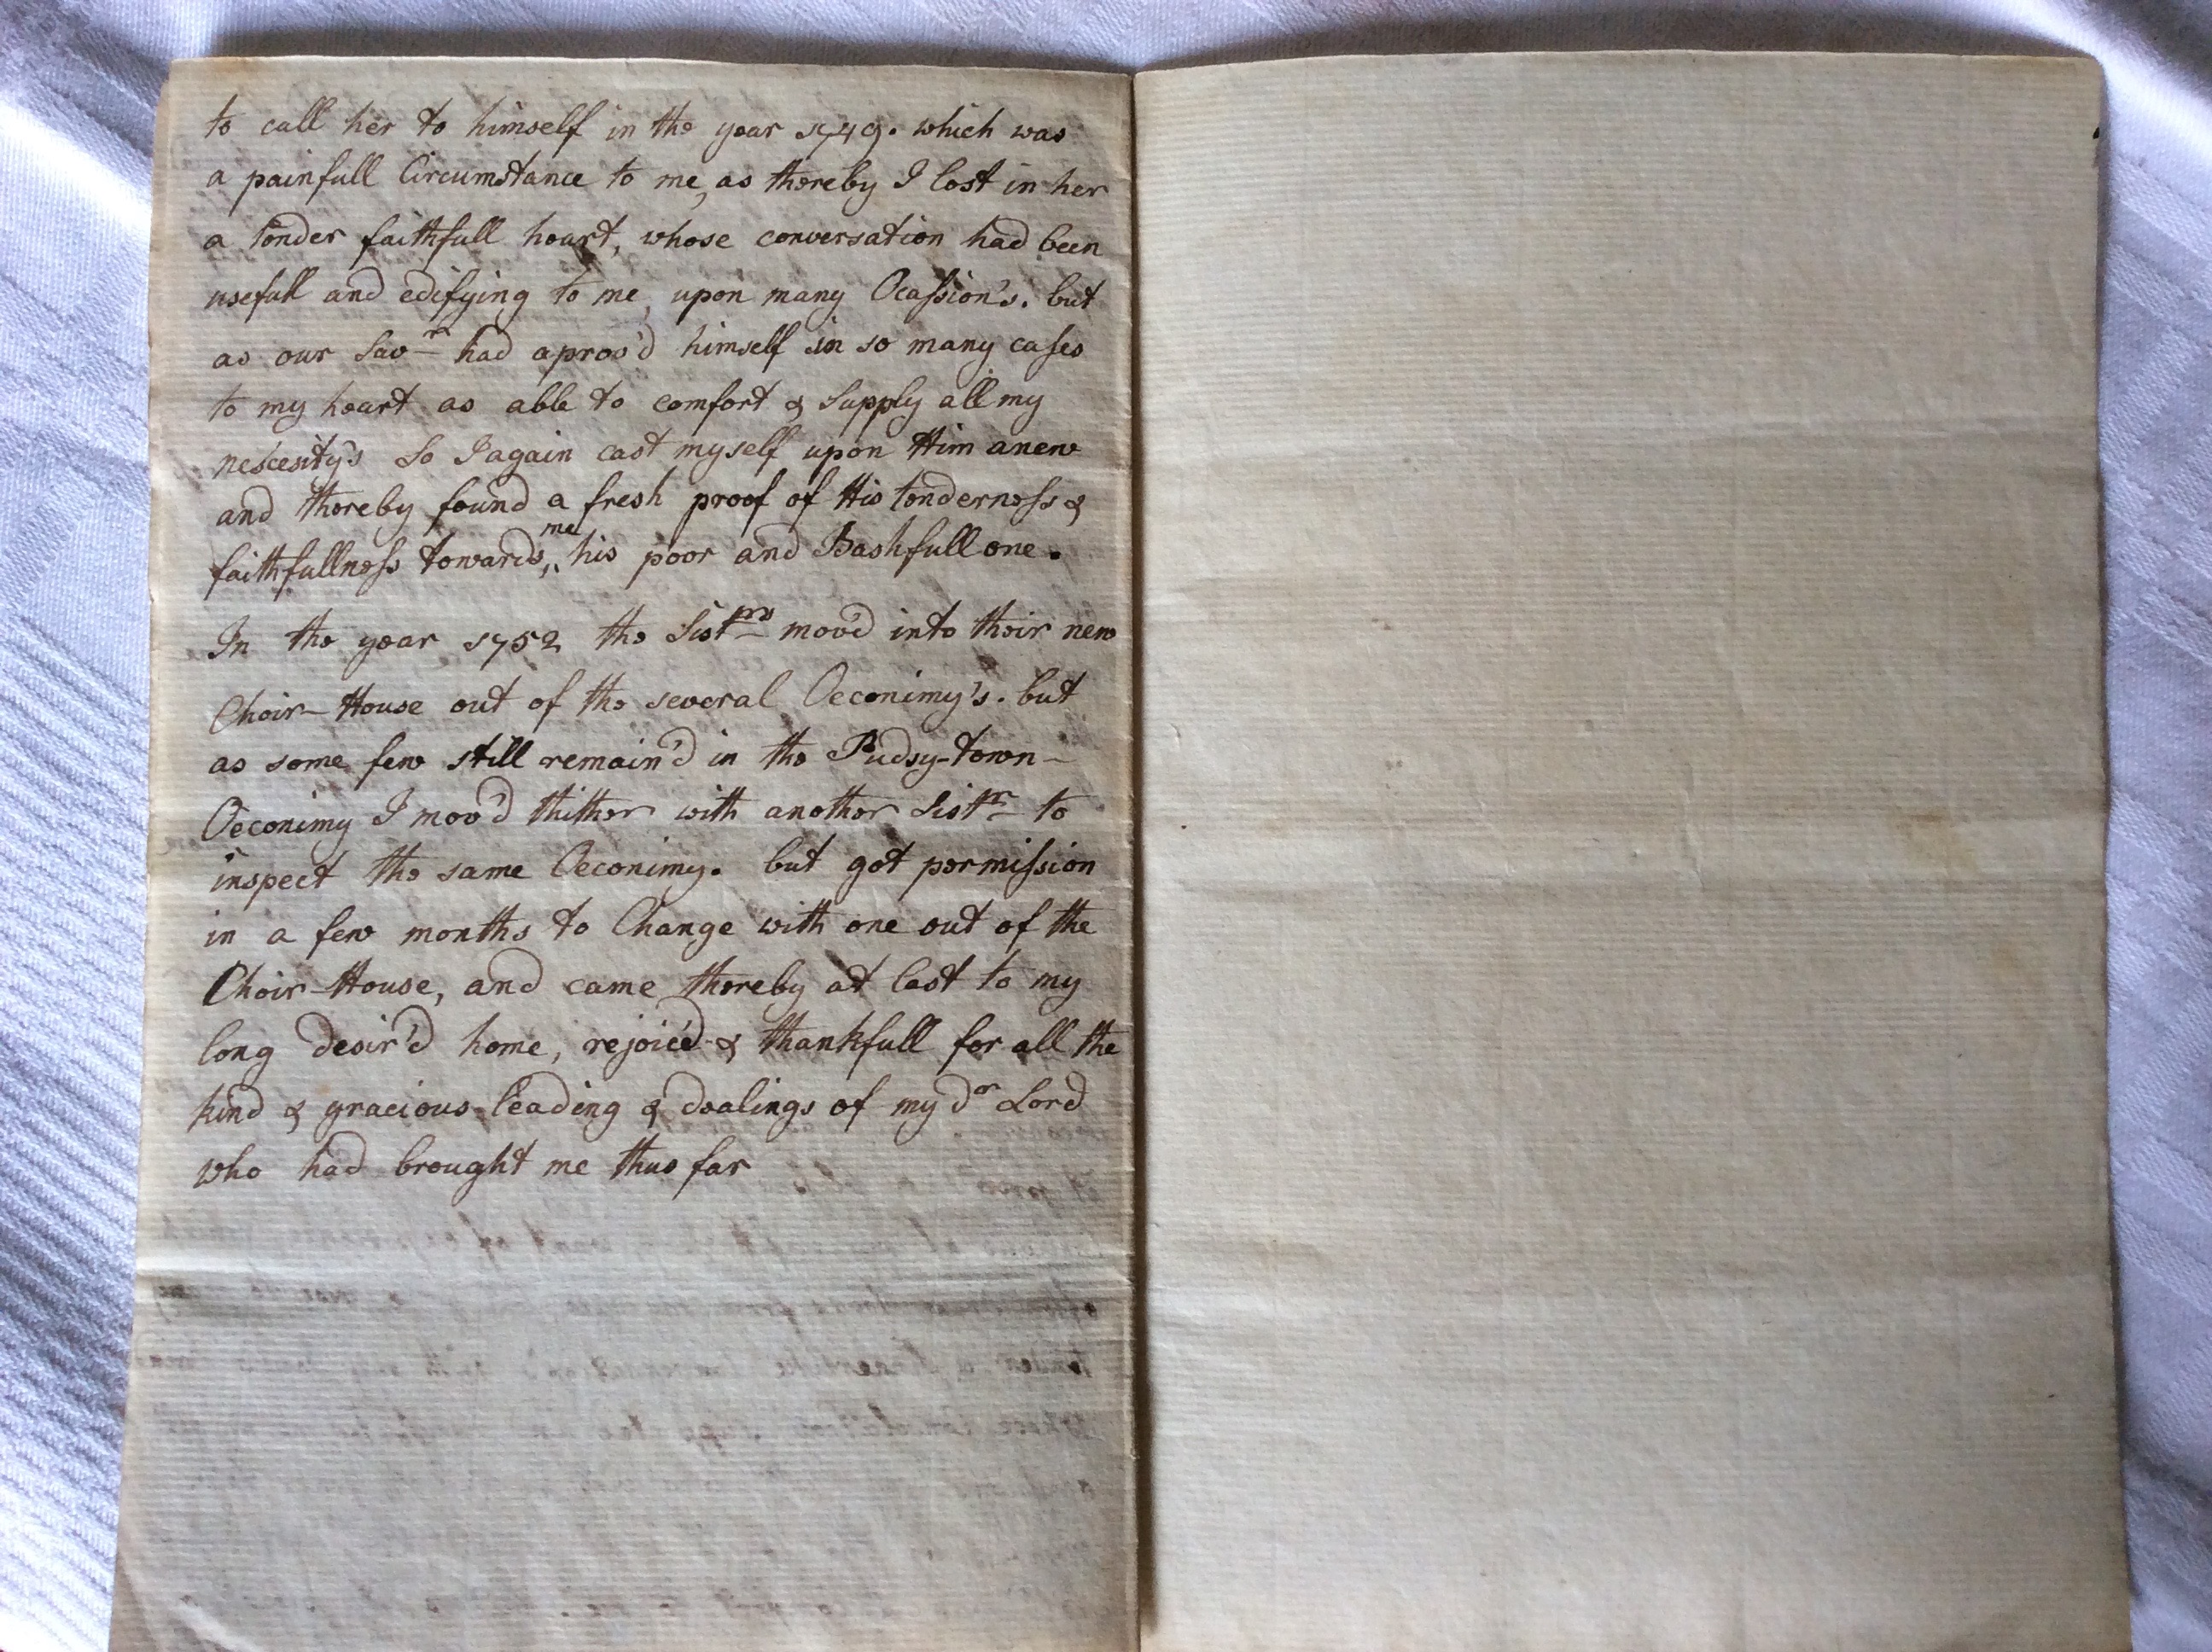 to call her to himself in the year 1749. which was
a painfull Circumstance to me, as thereby I lost in her
a tender faithfull heart, whose conversation had been
usefull and edifying to me, upon many Ocassion's. but
as our Savr had aprov'd himself in so many cases
to my heart as able to comfort & Supply all my
nescesity's So I again cast myself upon Him anew
and thereby found a fresh proof of His tenderness &
faithfullness towards me his poor and Bashfull one.
In the year 1752 the Sistrs mov'd into their new
Choir-House out of the several Oeconimy's. but
as some few still remain'd in the Pudsy-town-
Oeconimy I mov'd thither with another Sistr to
inspect the same Oeconimy. but got permission
in a few months to Change with one out of the
Choir-House, and came thereby at last to my
long desir'd home, rejoic'd & thankfull for all the
kind & gracious leading & dealings of my dr Lord
who had brought me thus far